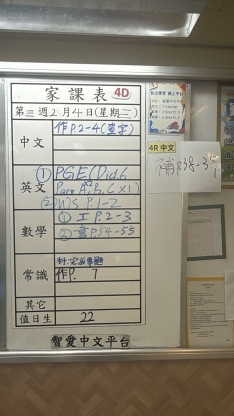 家課表 4D
第三週2月4日(星期三)
中文
作P.2-4(查字)
英文
① PGE(Did.6
Part A2,B,C x1)
② WS P.1-2
數學
① 工P.2-3
② 書P.54-55
常識
作P. 7
其它
值日生 22
智愛中文平台
4R 中文
補P.38-3